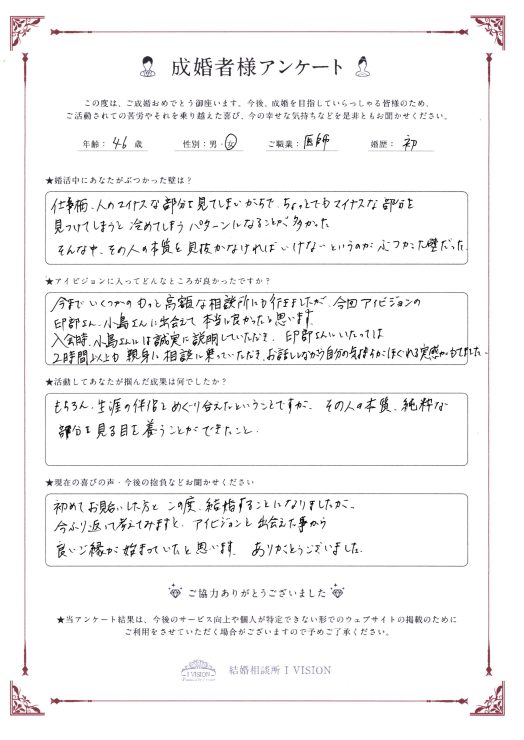 成婚者様アンケート
この度は、ご成婚おめでとう御座います。今後、成婚を目指していらっしゃる皆様のため、
ご活動されての苦労やそれを乗り越えた喜び、今の幸せな気持ちなどを是非ともお聞かせください。
年齢：46 歳 性別：男・女 ご職業：医師 婚歴：初
★婚活中にあなたがぶつかった壁は？
仕事柄、人のマイナスな部分を見てしまいがちで、ちょっとでもマイナスな部分を
見つけてしまうと冷めてしまうパターンになることが多かった
そんな中、その人の本質を見抜かなければいけないというのがぶつかった壁だった。
★アイビジョンに入ってどんなところが良かったですか？
今までいくつかのもっと高額な相談所にも行きましたが、今回アイビジョンの
印部さん、小島さんに出会えて本当に良かったと思います。
入会時、小島さんには誠実に説明していただき、印部さんにいたっては
2時間以上も親身に相談に乗っていただき、お話しながら自分の気持ちがほぐれる実感がもてました。
★活動してあなたが掴んだ成果は何でしたか？
もちろん、生涯の伴侶とめぐり会えたということですが、その人の本質、純粋な
部分を見る目を養うことができたこと。
★現在の喜びの声・今後の抱負などお聞かせください
初めてお見合いした方とこの度、結婚することになりましたが、
今ふり返って考えてみますと、アイビジョンと出会えた事から
良いご縁が始まっていたと思います。ありがとうございました。
ご協力ありがとうございました
★当アンケート結果は、今後のサービス向上や個人が特定できない形でのウェブサイトの掲載のために
ご利用をさせていただく場合がございますので予めご了承ください。
I VISION
結婚相談所 I VISION